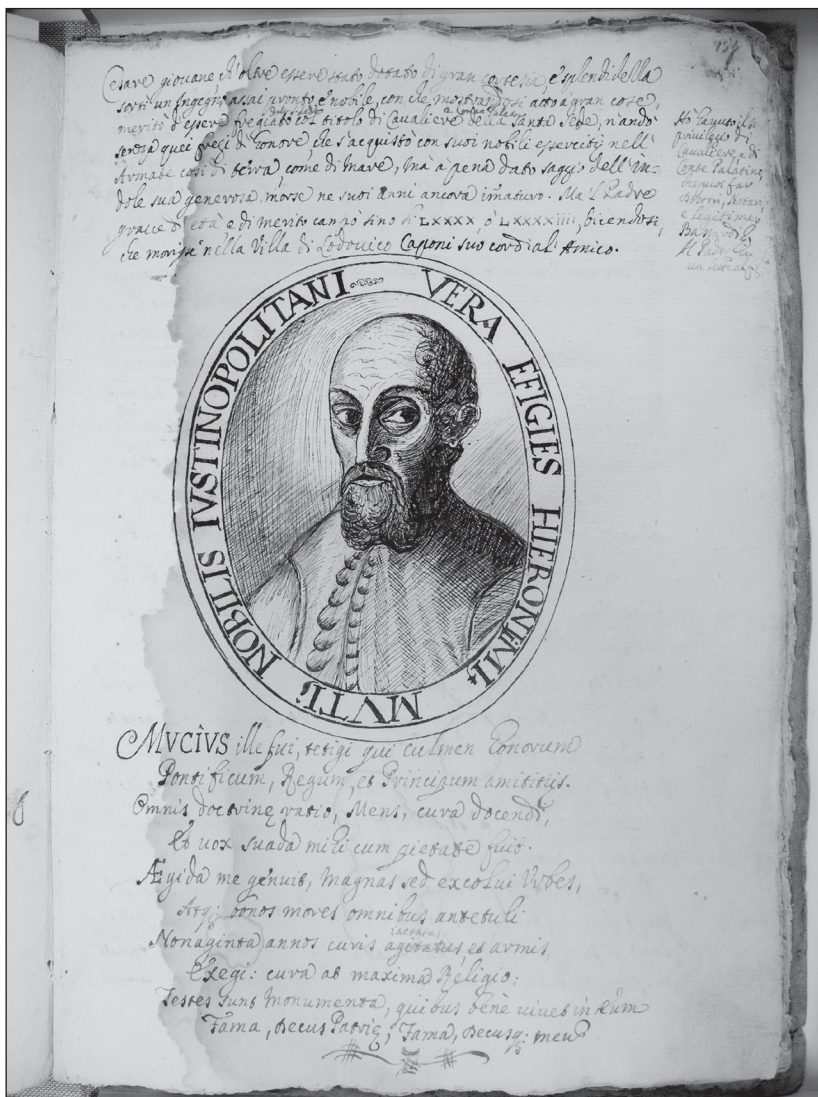 Cesare giovane ch'oltre essere stato dotato di gran cortesia, e splendidezza
sortì un Ingegno assai pronto e nobile, con che mostrandosi atto à gran cose,
e Conte Palat.
meritò d'essere fregiato col titolo di Cavaliere della Santa Sede, n'andò
senza quei fregi d'honore che s'acquistò con suoi nobili essercitij nell'
Armate così di terra, come di mare, mà à pena dato saggio dell'In-
dole sua generosa morse ne suoi anni ancora imaturo. Ma 'l Padre
grave d'età e di merito campò sino di LXXXX, ò LXXXXIIII, dicendosi,
che morisse nella Villa di Lodovico Caponi suo cordial' Amico.
Hà havuto il
privilegio di
Cavaliere, e di
Conte Palatino,
far
e legitimar
Bastardi,
Il Padre
VERA EFIGIES HIERONIMI MVTII NOBILIS IVSTINOPOLITANI
MVCIVS ille fui, tetigi qui culmen honorum
Pontificum, Regum, et Principum amititijs.
Omnis doctrinę ratio, Mens, cura docendi,
Et vox suada mihi cum pietate fuit.
Ægida me genuit, magnas sed excolui Vrbes,
Atq; bonos mores omnibus antetuli
iactatus
Nonaginta annos curis agitatus, et armis,
Exegi: cura at maxima Religio:
Testes sunt monumenta, quibus bene vivet in ęuum
Fama, decus Patrię; Fama, decusq; meum